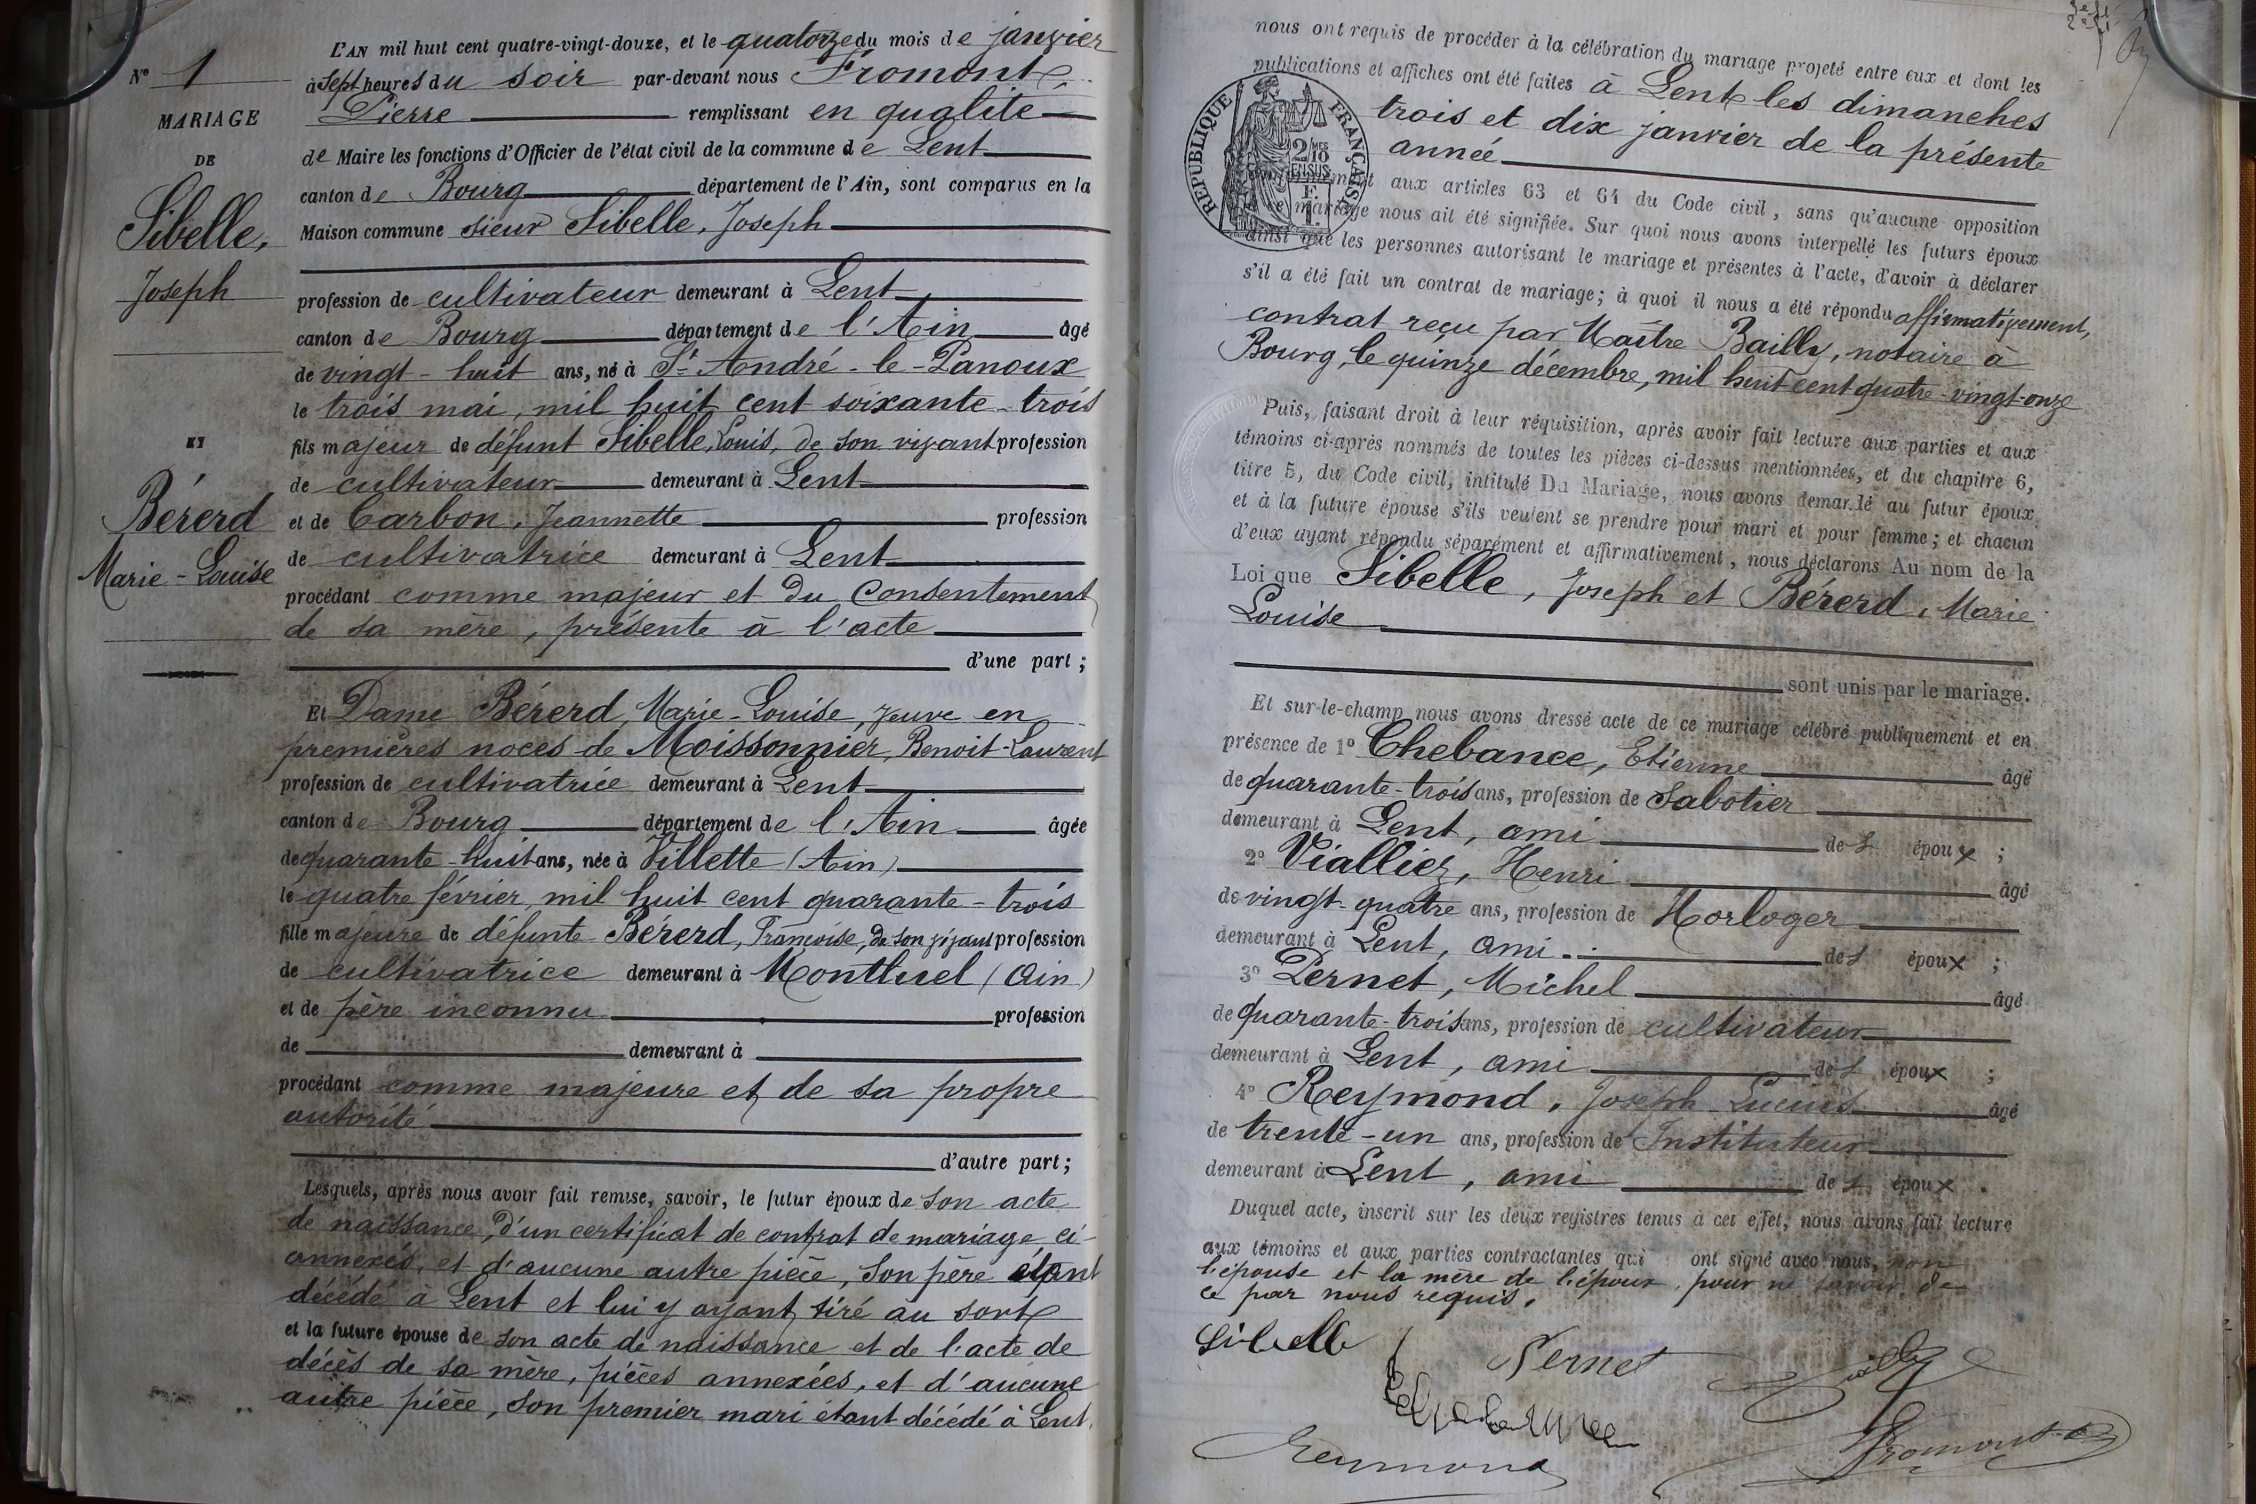 N° 1
MARIAGE
DE
Sibelle,
Joseph
ET
Bérerd
Marie-Louise
L'AN mil huit cent quatre-vingt-douze, et le quatorze du mois de janvier
à Sept heures du soir par-devant nous Fromont
Pierre remplissant en qualité
de Maire les fonctions d'Officier de l'état civil de la commune de Lent
canton de Bourg département de l'Ain, sont comparus en la
Maison commune sieur Sibelle, Joseph
profession de cultivateur demeurant à Lent
canton de Bourg département de l'Ain âgé
de vingt-huit ans, né à St André-le-Panoux
le trois mai, mil huit cent soixante-trois
fils majeur de défunt Sibelle, Louis, de son vivant profession
de cultivateur demeurant à Lent
et de Carbon, Jeannette profession
de cultivatrice demeurant à Lent
procédant comme majeur et du Consentement
de sa mère, présente à l'acte
d'une part ;
Et Dame Bérerd, Marie-Louise, veuve en
premières noces de Moissonnier, Benoit-Laurent
profession de cultivatrice demeurant à Lent
canton de Bourg département de l'Ain âgée
de quarante-huit ans, née à Villette (Ain)
le quatre février, mil huit cent quarante-trois
fille majeure de défunte Bérerd, Françoise, de son vivant profession
de cultivatrice demeurant à Montluel (Ain)
et de père inconnu profession
de demeurant à
procédant comme majeure et de sa propre
autorité
d'autre part ;
Lesquels, après nous avoir fait remise, savoir, le futur époux de son acte
de naissance, d'un certificat de contrat de mariage ci-
annexés, et d'aucune autre pièce, son père étant
décédé à Lent et lui y ayant tiré au sort
et la future épouse de son acte de naissance et de l'acte de
décès de sa mère, pièces annexées, et d'aucune
autre pièce, son premier mari étant décédé à Lent.
nous ont requis de procéder à la célébration du mariage projeté entre eux et dont les
publications et affiches ont été faites à Lent les dimanches
trois et dix janvier de la présente
année
RÉPUBLIQUE FRANÇAISE
2/10 MES
EN SUS
aux articles 63 et 64 du Code civil, sans qu'aucune opposition
mariage nous ait été signifiée. Sur quoi nous avons interpellé les futurs époux
ainsi que les personnes autorisant le mariage et présentes à l'acte, d'avoir à déclarer
s'il a été fait un contrat de mariage ; à quoi il nous a été répondu affirmativement,
contrat reçu par Maître Bailly, notaire à
Bourg, le quinze décembre, mil huit cent quatre-vingt-onze
Puis, faisant droit à leur réquisition, après avoir fait lecture aux parties et aux
témoins ci-après nommés de toutes les pièces ci-dessus mentionnées, et du chapitre 6,
titre 5, du Code civil, intitulé Du Mariage, nous avons demandé au futur époux
et à la future épouse s'ils veulent se prendre pour mari et pour femme ; et chacun
d'eux ayant répondu séparément et affirmativement, nous déclarons Au nom de la
Loi que Sibelle, Joseph et Bérerd, Marie
Louise
sont unis par le mariage.
Et sur-le-champ nous avons dressé acte de ce mariage célébré publiquement et en
présence de 1° Chebance, Etienne âgé
de quarante-trois ans, profession de Sabotier
demeurant à Lent, ami des époux ;
2° Viallier, Henri âgé
de vingt-quatre ans, profession de Horloger
demeurant à Lent, ami des époux ;
3° Pernet, Michel âgé
de quarante-trois ans, profession de cultivateur
demeurant à Lent, ami des époux ;
4° Reymond, Joseph Lucius âgé
de trente-un ans, profession de Instituteur
demeurant à Lent, ami des époux.
Duquel acte, inscrit sur les deux registres tenus à cet effet, nous avons fait lecture
aux témoins et aux parties contractantes qui ont signé avec nous, non
l'épouse et la mère de l'époux, pour ne savoir de
ce par nous requis.
Sibelle
Pernet
Reymond
Fromont